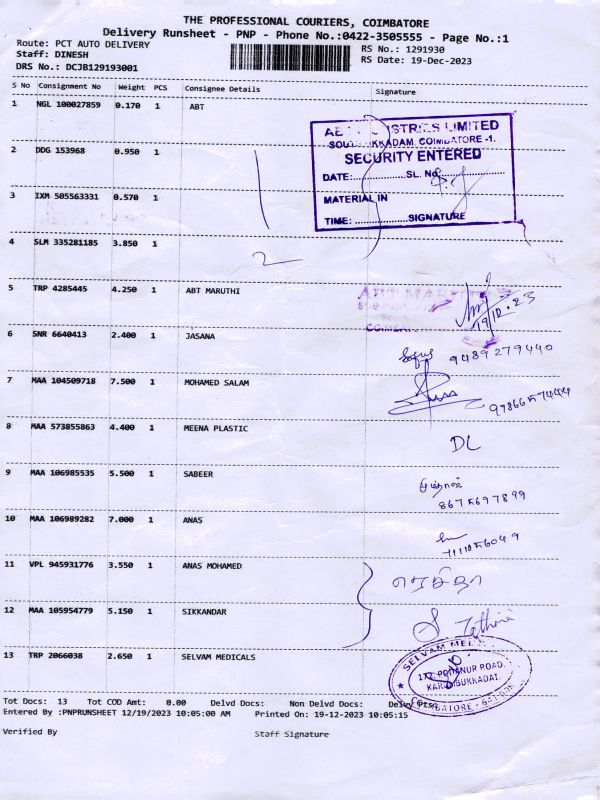 THE PROFESSIONAL COURIERS, COIMBATORE
Delivery Runsheet - PNP - Phone No.:0422-3505555 - Page No.:1
Route: PCT AUTO DELIVERY RS No.: 1291930
Staff: DINESH RS Date: 19-Dec-2023
DRS No.: DCJB129193001
S No Consignment No Weight PCS Consignee Details Signature
1 NGL 100027859 0.170 1 ABT
INDUSTRIES LIMITED
COIMBATORE -1.
2 DDG 153968 0.950 1
SECURITY ENTERED
DATE:............SL. No.............
3 IXM 505563331 0.570 1
MATERIAL IN
TIME:............SIGNATURE
4 SLM 335281185 3.850 1
2
5 TRP 4285445 4.250 1 ABT MARUTHI
19/12.23
6 SNR 6640413 2.400 1 JASANA
9489279440
7 MAA 104509718 7.500 1 MOHAMED SALAM
8 MAA 573855863 4.400 1 MEENA PLASTIC
DL
9 MAA 106985535 5.500 1 SABEER
8675697899
10 MAA 106989282 7.000 1 ANAS
11 VPL 945931776 3.550 1 ANAS MOHAMED
12 MAA 105954779 5.150 1 SIKKANDAR
13 TRP 2066038 2.650 1 SELVAM MEDICALS
SELVAM
PODANUR ROAD,
Tot Docs: 13 Tot COD Amt: 0.00 Delvd Docs: Non Delvd Docs: Delvy Ptsg
Entered By :PNPRUNSHEET 12/19/2023 10:05:00 AM Printed On: 19-12-2023 10:05:15
Verified By Staff Signature